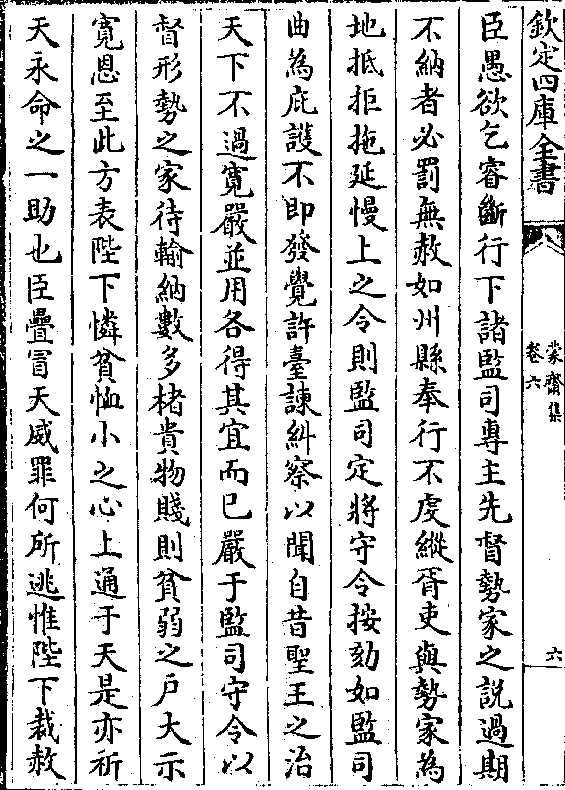 欽定四庫全書
蒙齋集
卷六
六
臣愚欲乞睿斷行下諸監司專主先督勢家之説過期
不納者必罰無赦如州縣奉行不䖍縱胥吏與勢家為
地抵拒拖延慢上之令則監司定將守令按劾如監司
曲為庇護不即發覺許臺諫糾察以聞自昔聖王之治
天下不過寛嚴並用各得其宜而已嚴于監司守令以
督形勢之家待輸納數多楮貴物賤則貧弱之户大示
寛恩至此方表陛下憐貧恤小之心上通于天是亦祈
天永命之一助也臣疊冒天威罪何所逃惟陛下裁赦